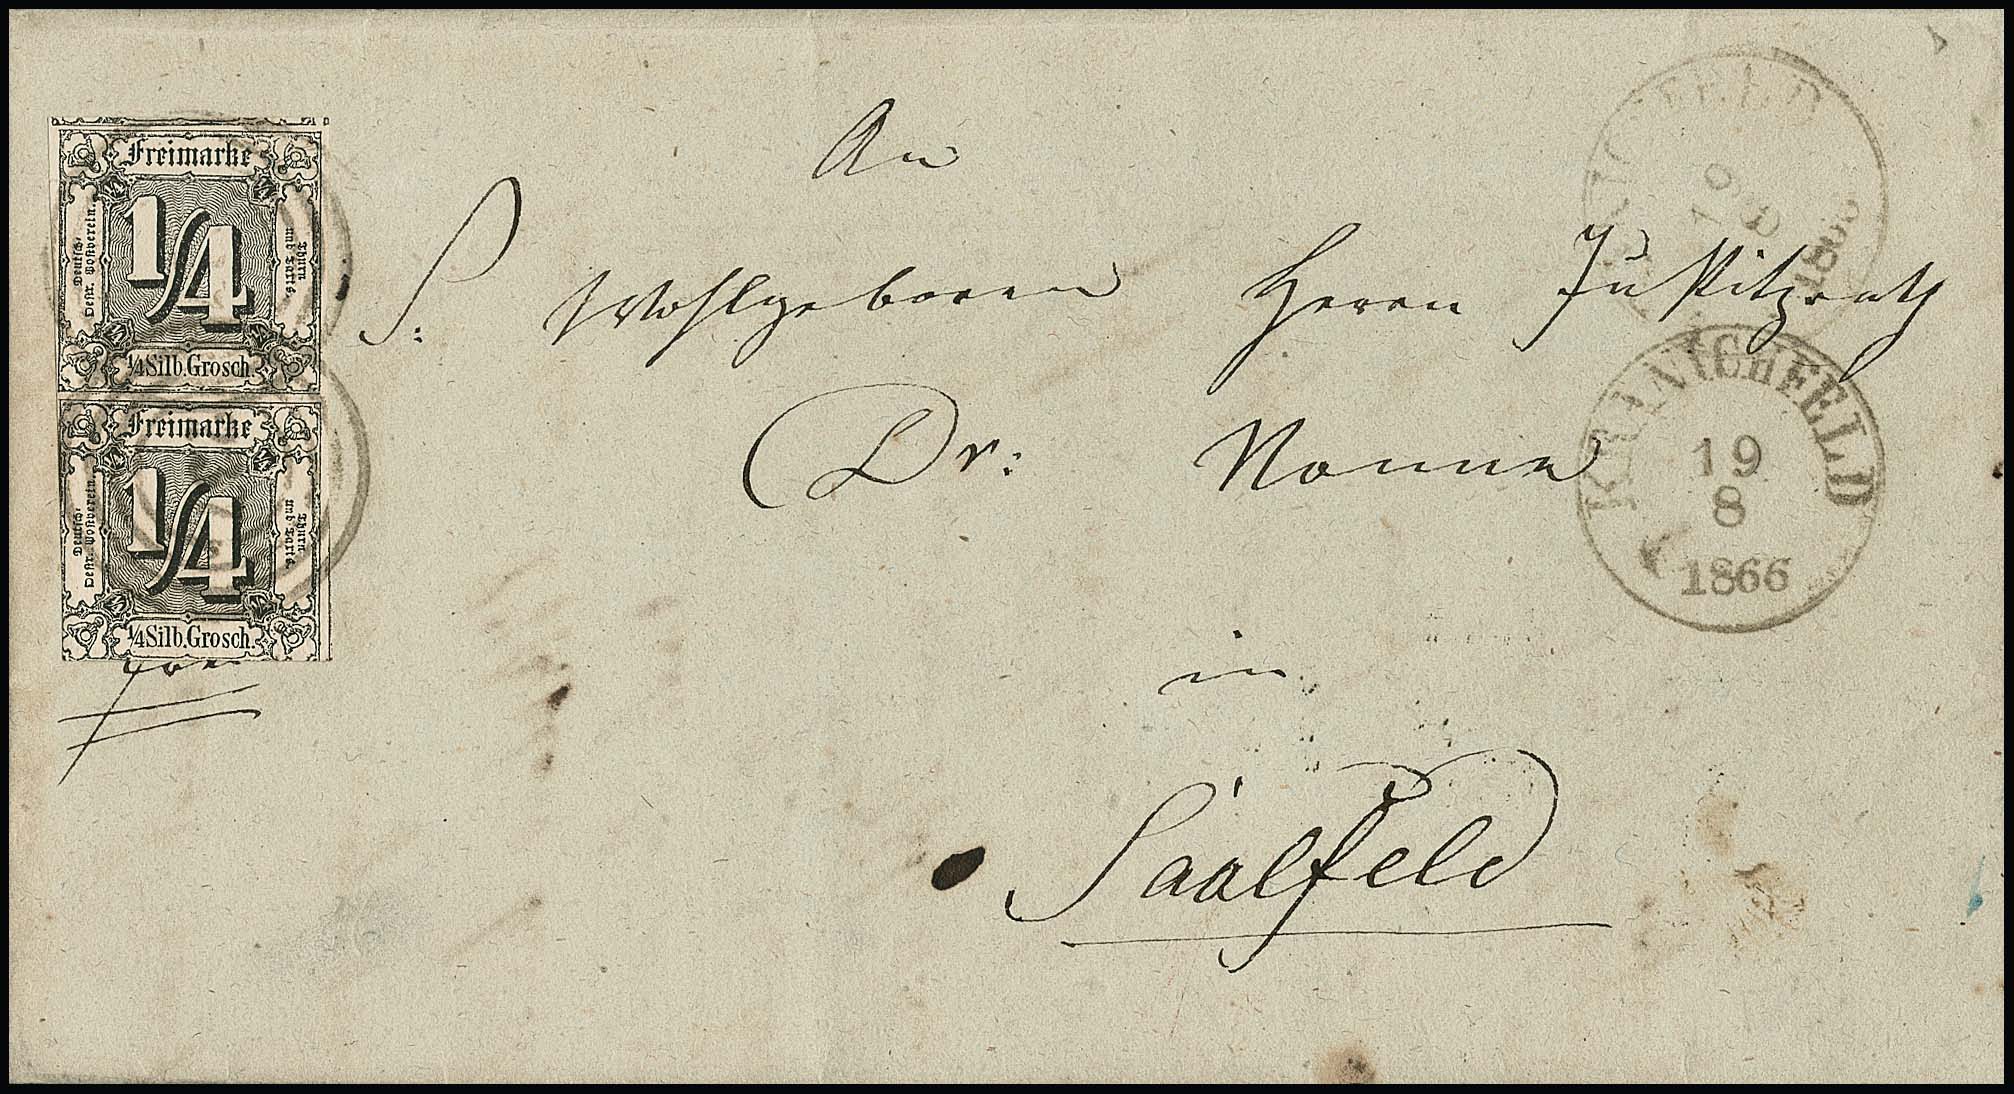 Freimarke
Deutsch-
Oestr. Postverein.
1/4
Thurn
und Taxis.
1/4 Silb. Grosch.
Freimarke
Deutsch-
Oestr. Postverein.
1/4
Thurn
und Taxis.
1/4 Silb. Grosch.
An
S. Wohlgeboren Herrn Justizrath
Dr: Nonne
in
Saalfeld
KRANICHFELD
19
8
1866